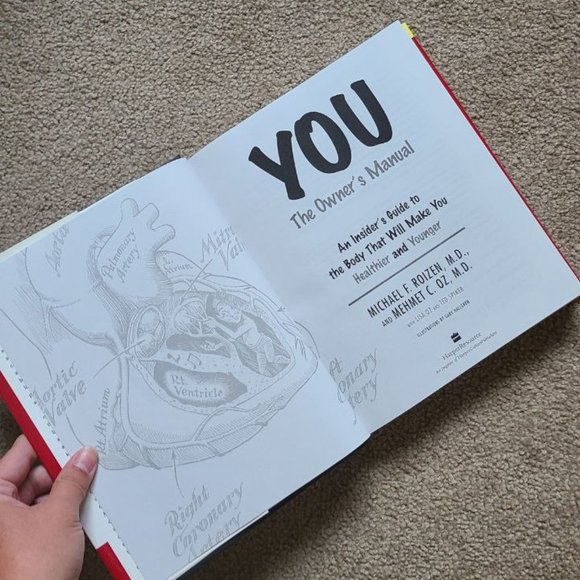 Aorta
Pulmonary
Artery
Mitr
Valv
L.
Atrium
Aortic
Valve
Rt.
Ventricle
Rt Atrium
ft
onary
tery
Right
Coronary
Artery
YOU
The Owner's Manual
An Insider's Guide to
the Body That Will Make You
Healthier and Younger
MICHAEL F. ROIZEN, M.D.,
AND MEHMET C. OZ, M.D.
WITH LISA OZ AND TED SPIKER
ILLUSTRATIONS BY GARY HALLGREN
HarperResource
An Imprint of HarperCollinsPublishers